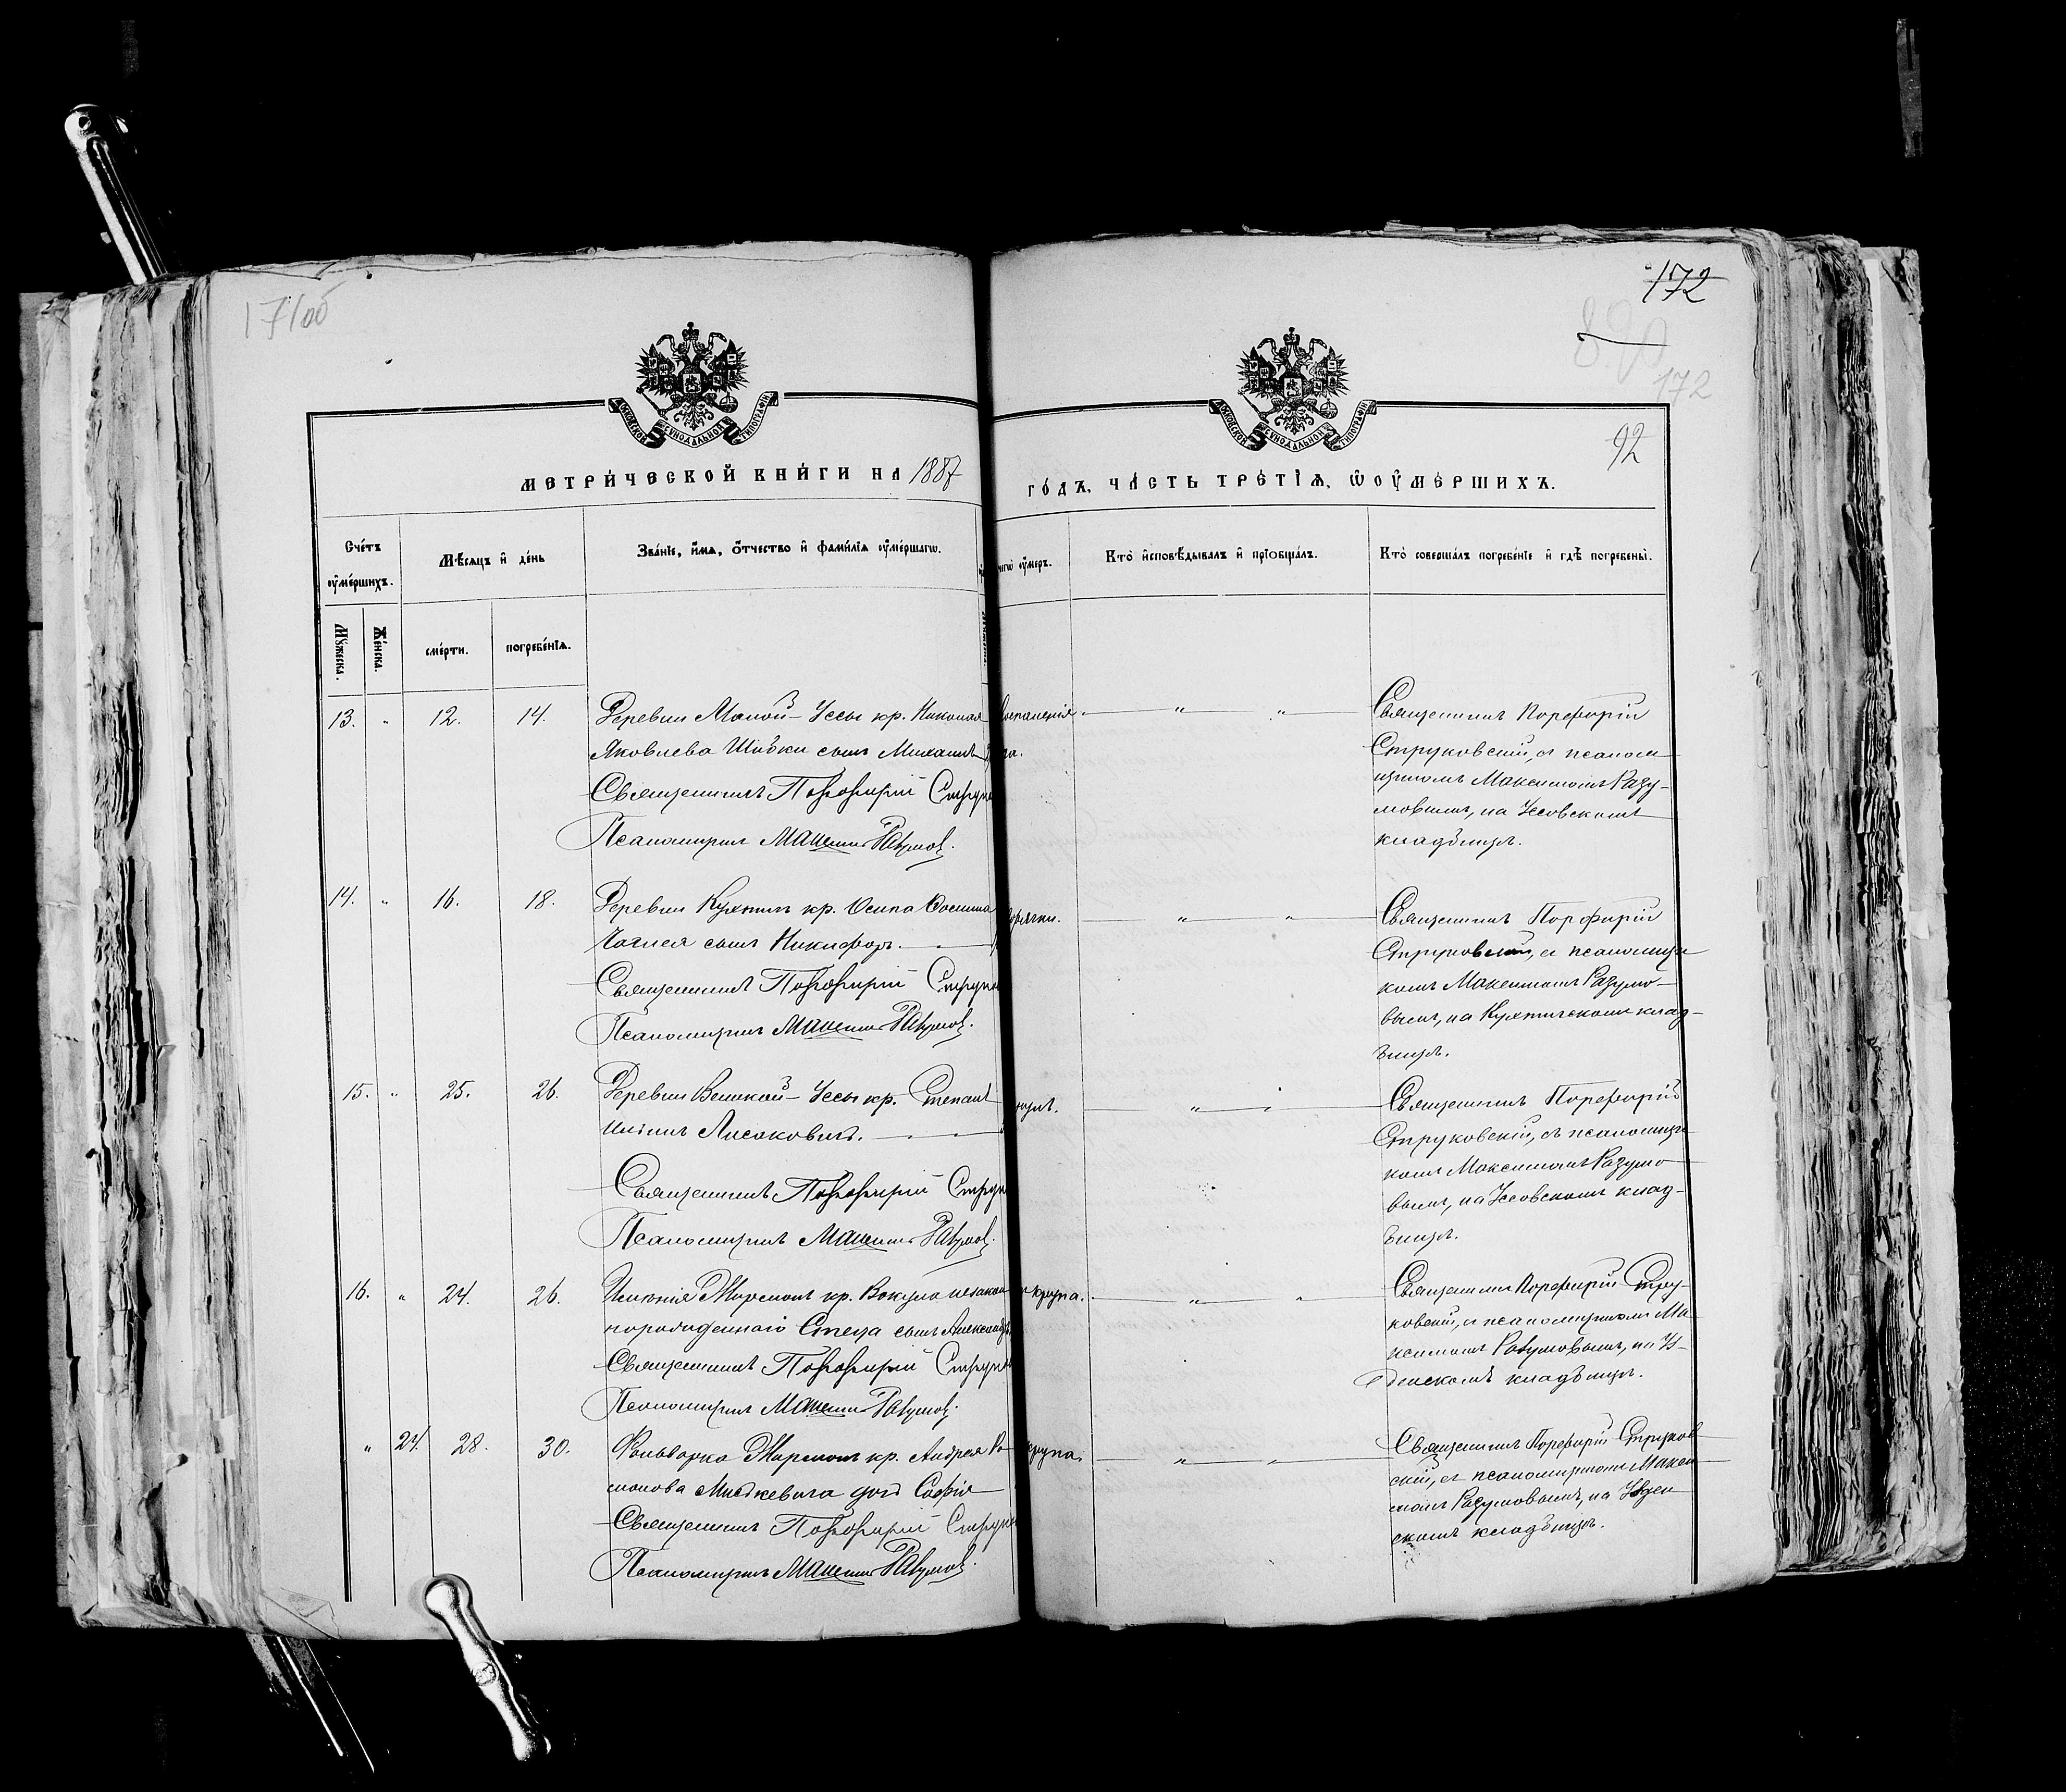 171об
172
890
172
92
МОСКОВСКОЙ СѴНОДАЛЬНОЙ ТИПОГРАФІИ
МОСКОВСКОЙ СѴНОДАЛЬНОЙ ТИПОГРАФІИ
МЕТРИ́ЧЕСКОЙ КНИ́ГИ НА 1887 ГО́ДЪ, ЧА́СТЬ ТРЕ́ТІѦ, Ѡ ОУМЕ́РШИХЪ.
Сче́тъ оумершихъ.
Мѣсяцъ и де́нь
Зва́ніе, и́мѧ, о́тчество и фами́лія оуме́ршагѡ.
чегѡ оумеръ.
Кто̀ исповѣ́дывалъ и пріобща́лъ.
Кто̀ соверша́лъ погребе́ніе и гдѣ̀ погребены̀.
Мꙋжеска.
Же́нска.
сме́рти.
погребе́нія.
13. " 12. 14. Деревни Малой-Уссы кр. Николая
Яковлева Шибки сынъ Михаилъ
Священникъ Порфирій Струко
Псаломщикъ Максимъ Разумов.
" "
Священникъ Порфирій
Струковскій, съ псалом
щикомъ Максимомъ Разу-
мовымъ, на Уссовскомъ
кладбищѣ.
14. " 16. 18. Деревни Кухтичъ кр. Осипа
сынъ Никифоръ.
Священникъ Порфирій Струко
Псаломщикъ Максимъ Разумов.
" "
Священникъ Порфирій
Струковскій, съ псаломщи
комъ Максимомъ Разумо-
вымъ, на Кухтичскомъ клад-
бищѣ.
15. " 25. 26. Деревни Великой-Уссы кр. Степанъ
Лисаковичъ.
Священникъ Порфирій Струко
Псаломщикъ Максимъ Разумов.
" "
Священникъ Порфирій
Струковскій, съ псаломщи
комъ Максимомъ Разумо
вымъ, на Уссовскомъ клад-
бищѣ.
16. " 24. 26. Имѣнія кр. незакон
норожденнаго сынъ Александръ
Священникъ Порфирій Струко
Псаломщикъ Максимъ Разумов.
крупа.
" "
Священникъ Порфирій Стру-
ковскій, съ псаломщикомъ Ма
ксимомъ Разумовымъ, на Уз-
денскомъ кладбищѣ.
" 24. 28. 30. Фольварка кр. Андрея Ро
манова Мицкевича дочь Софія
Священникъ Порфирій Струко
Псаломщикъ Максимъ Разумов.
крупа.
" "
Священникъ Порфирій Струков
скій, съ псаломщикомъ Макси
момъ Разумовымъ, на Узден
скомъ кладбищѣ.